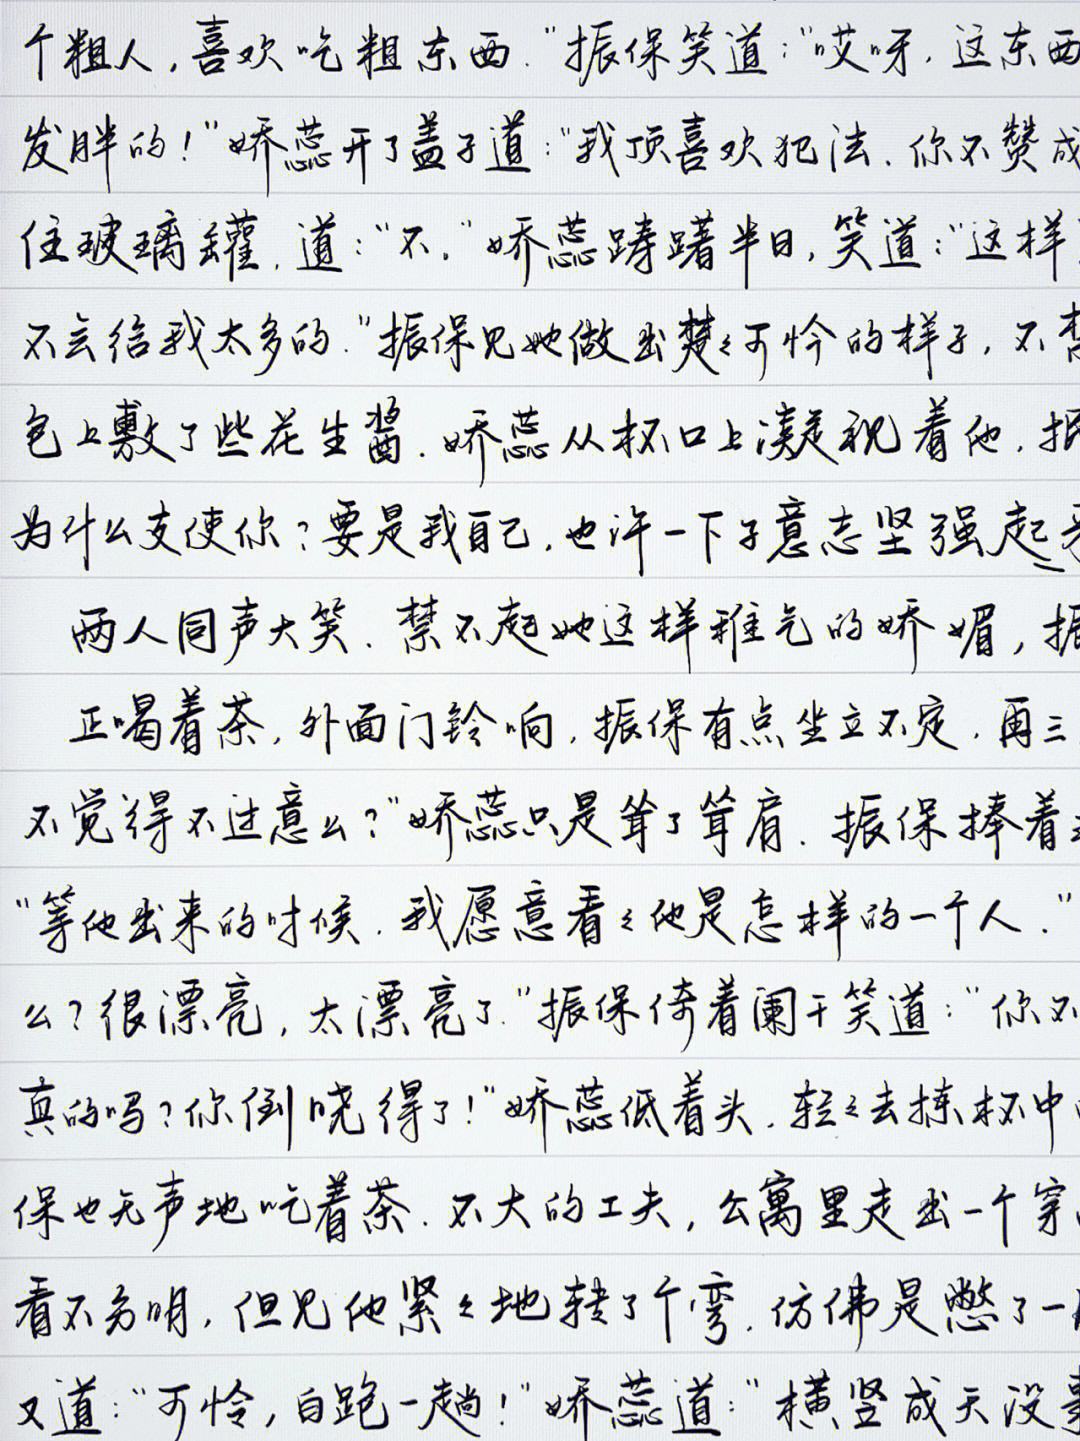 个粗人，喜欢吃粗东西。"振保笑道："哎呀，这东西
发胖的！"娇蕊开了盖子道："我顶喜欢犯法。你不赞成
住玻璃罐，道："不。"娇蕊踌躇半日，笑道："这样
不会给我太多的。"振保见她做出楚々可怜的样子，不禁
包上敷了些花生酱。娇蕊从杯口上凝视着他，振
为什么支使你？要是我自己，也许一下子意志坚强起来
两人同声大笑。禁不起她这样稚气的娇媚，振
正喝着茶，外面门铃响，振保有点坐立不定，再三
不觉得不过意么？"娇蕊只是耸了耸肩。振保捧着
"等他出来的时候，我愿意看々他是怎样的一个人。"
么？很漂亮，太漂亮了。"振保倚着阑干笑道："你不
真的吗？你倒晓得了！"娇蕊低着头，轻々去拣杯中
保也无声地吃着茶。不大的工夫，公寓里走出一个穿
看不分明，但见他紧々地转了个弯，仿佛是憋了一
又道："可怜，白跑一趟！"娇蕊道："横竖成天没事